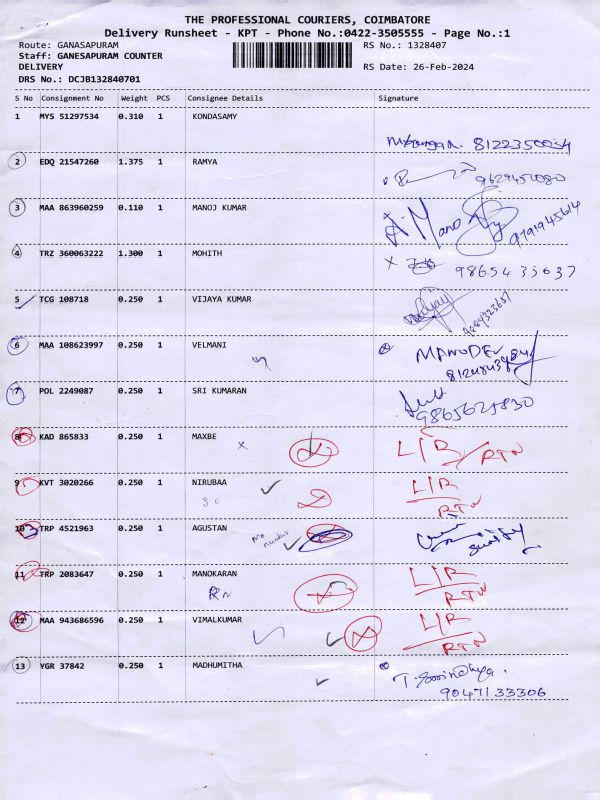 THE PROFESSIONAL COURIERS, COIMBATORE
Delivery Runsheet - KPT - Phone No.:0422-3505555 - Page No.:1
Route: GANASAPURAM RS No.: 1328407
Staff: GANESAPURAM COUNTER
DELIVERY RS Date: 26-Feb-2024
DRS No.: DCJB132840701
S No Consignment No Weight PCS Consignee Details Signature
1 MYS 51297534 0.310 1 KONDASAMY
8122350054
2 EDQ 21547260 1.375 1 RAMYA
3 MAA 863960259 0.110 1 MANOJ KUMAR
A. Mano
9791945614
4 TRZ 360063222 1.300 1 MOHITH
x 98654 33637
5 TCG 108718 0.250 1 VIJAYA KUMAR
6 MAA 108623997 0.250 1 VELMANI
MANODEV
7 POL 2249087 0.250 1 SRI KUMARAN
9865625830
8 KAD 865833 0.250 1 MAXBE
x L/R/RTN
9 KVT 3020266 0.250 1 NIRUBAA
L/R
RTN
10 TRP 4521963 0.250 1 AGUSTAN
No number
11 TRP 2083647 0.250 1 MANOKARAN
L/R
RTN
12 MAA 943686596 0.250 1 VIMALKUMAR
L/R
RTN
13 YGR 37842 0.250 1 MADHUMITHA
90471 33306